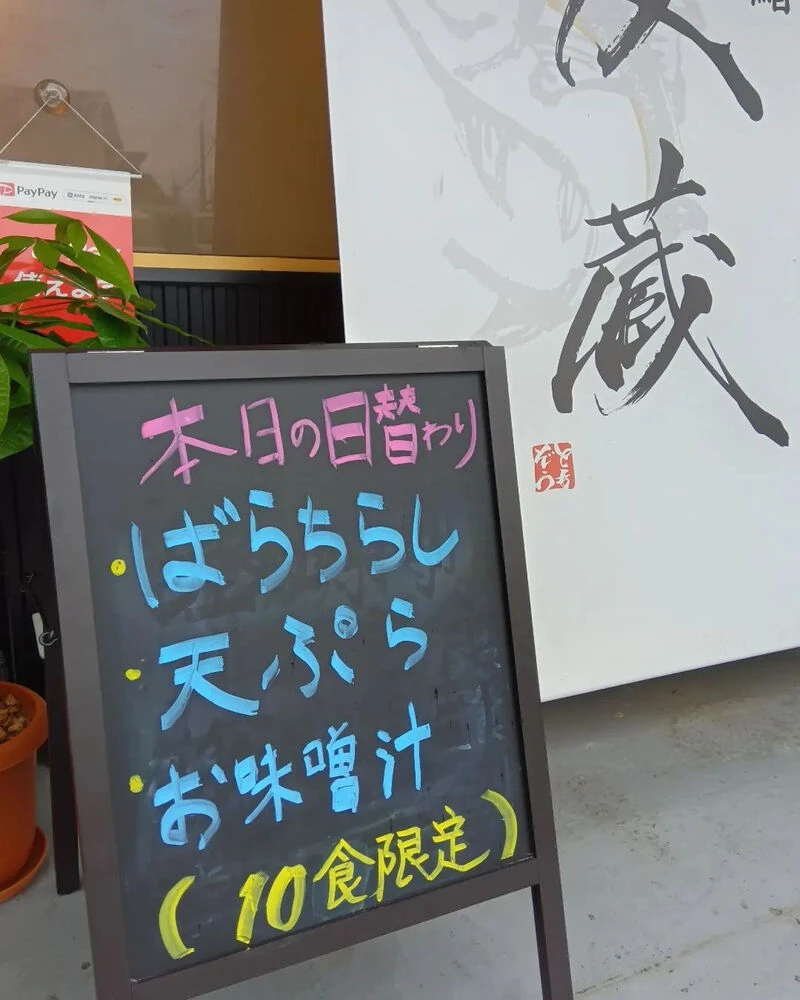 PayPay
使えます
蔵
本日の日替わり
・ばらちらし
・天ぷら
・お味噌汁
(10食限定)